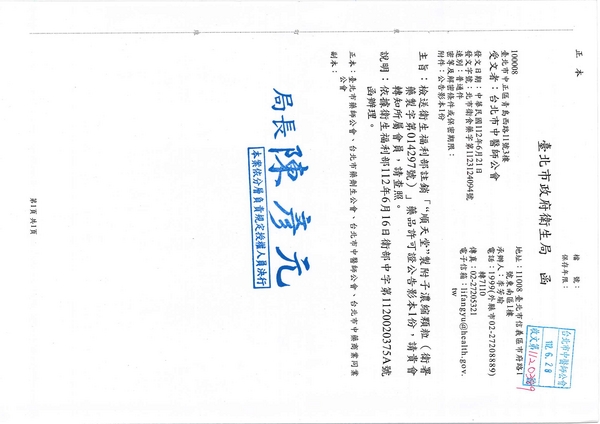 正本
檔 號：
保存年限：
臺北市政府衛生局 函
地址：11008 臺北市信義區市府路1
號東南區1樓
承辦人：李芳瑜
電話：1999(外縣市02-27208889)
轉7110
傳真：02-27205321
電子信箱：lifangyu@health.gov.
tw
台北市中醫師公會
112.6.28
收文第
100008
臺北市中正區青島西路11號3樓
受文者：台北市中醫師公會
發文日期：中華民國112年6月21日
發文字號：北市衛食藥字第1123124094號
速別：普通件
密等及解密條件或保密期限：
附件：公告影本1份
主旨：檢送衛生福利部註銷「“順天堂”製附子濃縮顆粒（衛署
藥製字第014297號）」藥品許可證公告影本1份，請貴會
轉知所屬會員，請查照。
說明：依據衛生福利部112年6月16日衛部中字第1120020375A號
函辦理。
正本：臺北市藥師公會、台北市藥劑生公會、台北市中醫師公會、台北市中藥商業同業
公會
副本：
局長 陳彥元
本案依分層負責規定授權人員決行
第1頁 共1頁